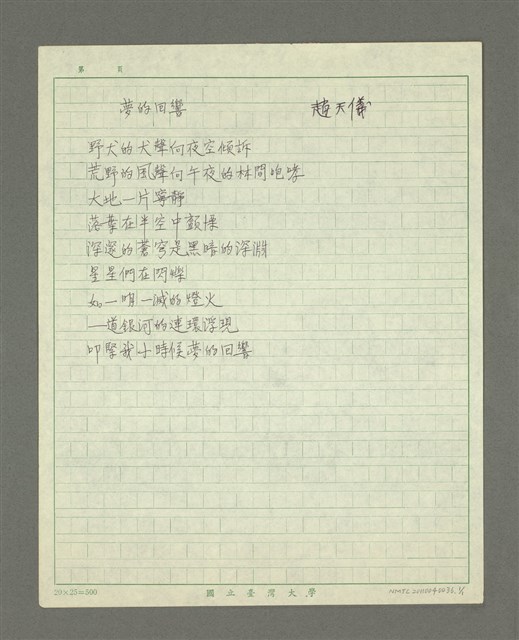 第 頁
夢的回響 趙天儀
野犬的犬聲向夜空傾訴
荒野的風聲向午夜的林間咆哮
大地一片寧靜
落葉在半空中顫慄
深邃的蒼穹是黑暗的深淵
星星們在閃爍
如一明一滅的燈火
一道銀河的連環浮現
叩緊我小時候夢的回響
20×25=500 國立臺灣大學